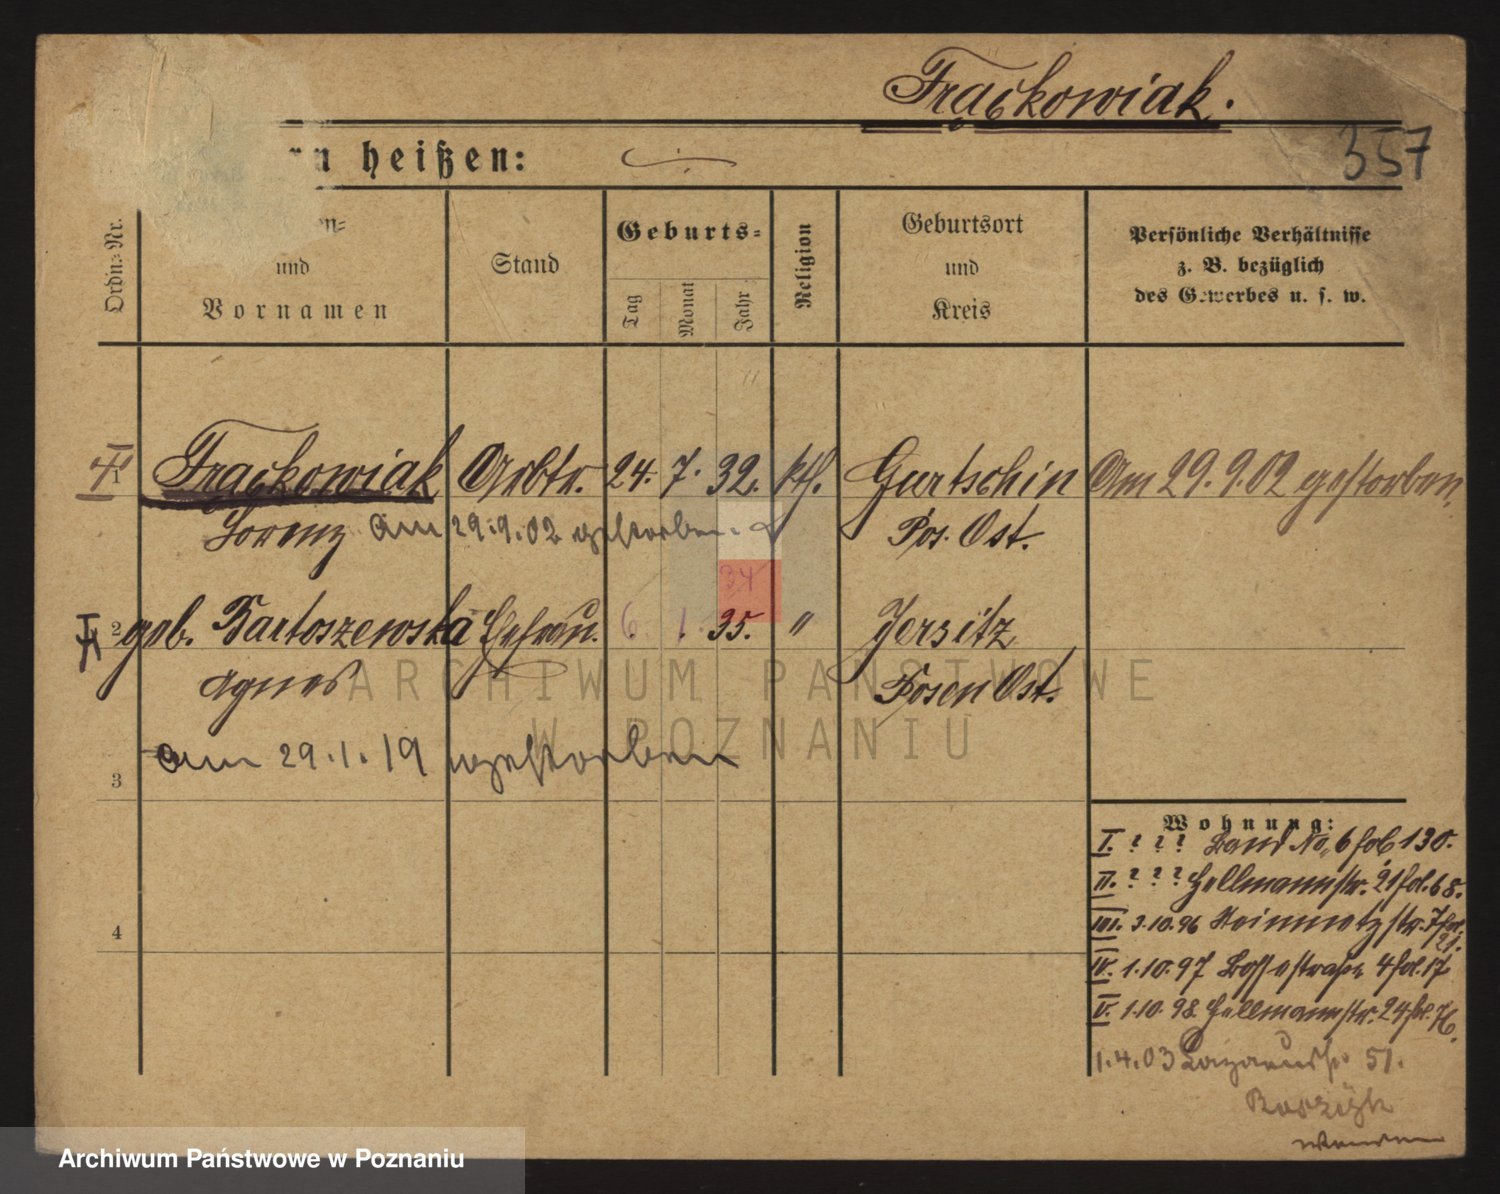 Frąckowiak.
357
rn heißen:
Ordn.-Nr.
en-
und
Vornamen
Stand
Geburts-
Tag
Monat
Jahr
Religion
Geburtsort
und
Kreis
Persönliche Verhältnisse
z. B. bezüglich
des Gewerbes u. s. w.
1 Frąckowiak Arbtr. 24. 7. 32. kth. Gurtschin Am 29.9.02 gestorben.
Lorenz am 29.9.02 gestorben. Pos. Ost.
34
2 geb. Bartoszewska Ehefrau. 6. 1. 35. " Jersitz
Agnes Posen Ost.
am 29.1.19 gestorben
3
4
Wohnung:
I. ? ? ? Land No. 6 fol 130.
II. ? ? ? Hellmannstr. 21 fol. 68.
III. 3.10.96 Steinmetzstr. 7 fol. 21.
IV. 1.10.97 Bossestraße 4 fol. 17
V. 1.10.98. Hellmannstr. 24 fol. 76.
1.4.03 Lazarusstr. 51.
ARCHIWUM PAŃSTWOWE
W POZNANIU
Archiwum Państwowe w Poznaniu